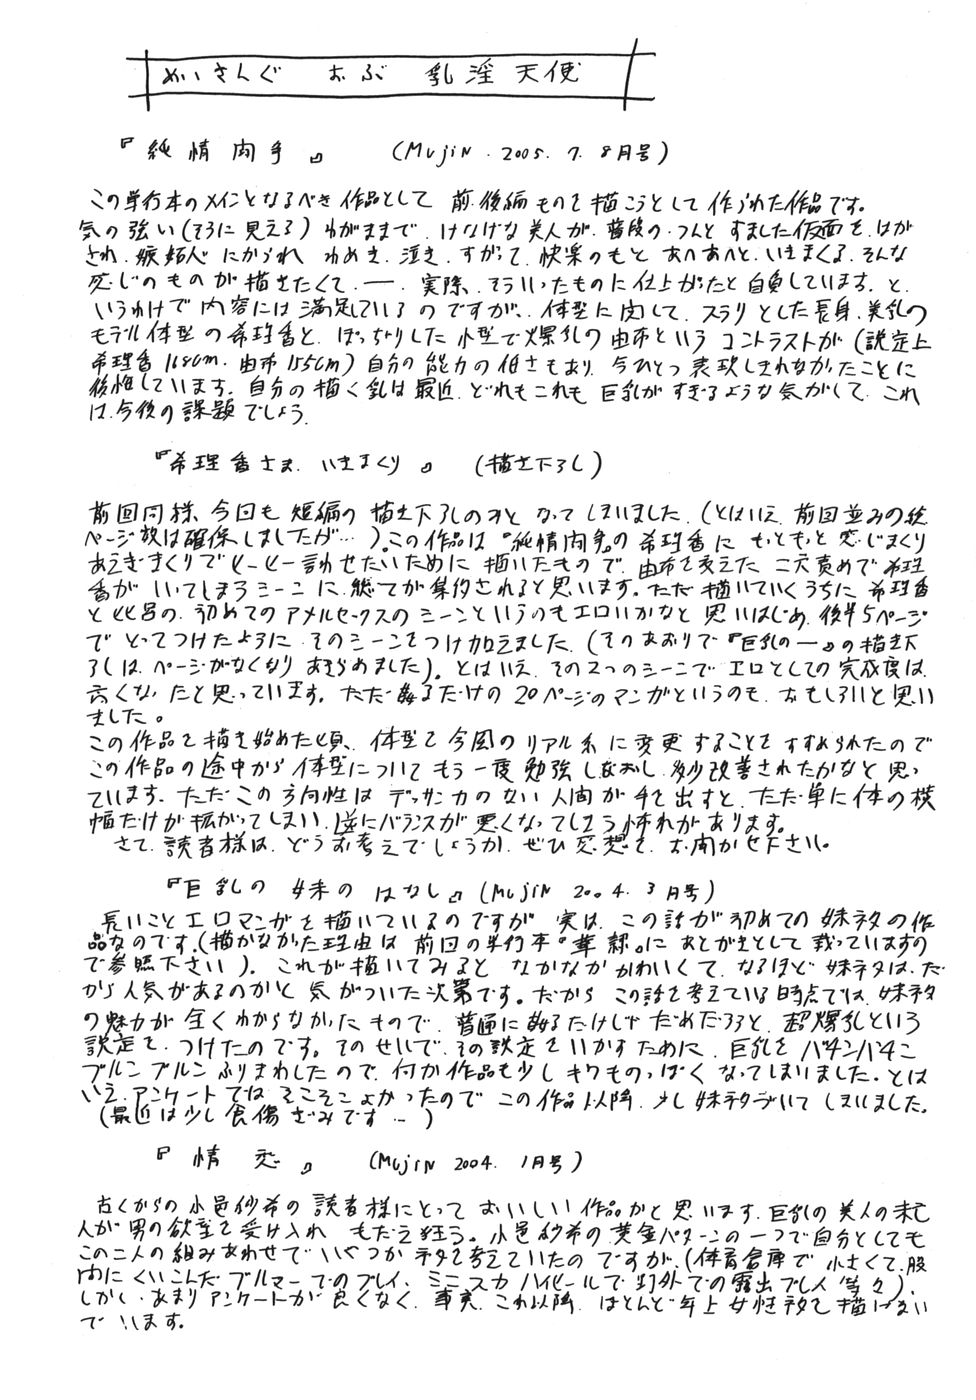 めいきんぐ おぶ 乳淫天使
『純情肉手』 (MUJIN. 2005. 7. 8月号)
この単行本のメインとなるべき作品として 前.後編ものを描こうとして作られた作品です。
気の強い(そうに見える) わがままで、けなげな美人が、普段の、つんと すました仮面を、はが
され、嫉妬心にかられ わめき、泣き、すがって、快楽のもと あへあへと、いきまくる、そんな
感じのものが描きたくて、ー、 実際、そういったものに仕上がったと自負しています。と、
いうわけで内容には満足しているのですが、体型に関して、スラリとした長身、美乳の
モデル体型の希理香と、ぽっちゃりした小型で爆乳の由布というコントラストが(設定上
希理香168cm. 由布155cm)自分の能力の低さもあり、今ひとつ表現しきれなかったことに
後悔しています。自分の描く乳は最近、どれもこれも巨乳がすぎるような気がして、これ
は、今後の課題でしょう。
『希理香さま.いきまくり』 (描き下ろし)
前回同様、今回も短編の描き下ろしのみとなってしまいました、(とはいえ、前回並みの総
ページ数は確保しましたが…)。この作品は『純情肉手』の希理香に もともと感じまくり
あえぎまくりでヒーヒー言わせたいために描いたもので、由布を交えた二穴責めで希理
香がいてしまうシーンに、総てが集約されると思います。ただ描いていくうちに希理香
と 呂の、初めてのアナルセックスのシーンというのもエロいかなと思いはじめ、後半5ページ
でとってつけたように、そのシーンをつけ加えました、(そのあおりで『巨乳の―』の描き下
ろしは、ページがなくなり あきらめました)。とはいえ、その2つのシーンでエロとしての完成度は、
高くなったと思っています。ただ姦るだけの20ページのマンガというのも、おもしろいと思い
ました。
この作品を描き始めた頃、体型を今風のリアル系に変更することをすすめられたので
この作品の途中から体型についてもう一度勉強しなおし、多少改善されたかなと思っ
ています。ただこの方向性はデッサン力のない人間が手を出すと、ただ単に体の横
幅だけが拡がってしまい、逆にバランスが悪くなってしまう怖れがあります。
さて、読者様は、どうお考えでしょうか、ぜひ感想を、お聞かせ下さい。
『巨乳の 妹の はなし』(MUJIN 2004. 3月号)
長いことエロマンガを描いているのですが 実は、この話が初めての妹ネタの作
品なのです、(描かなかった理由は 前回の単行本『 』にあとがきとして載っていますの
で参照下さい)。これが描いてみると なかなかかわいくて、なるほど妹ネタは、だ
から人気があるのかと気がついた次第です。だから この話を考えている時点では、妹ネタ
の魅力が全くわからなかったもので、普通に姦るだけじゃ だめだろうと、超爆乳という
設定を、つけたのです。そのせいで、その設定をいかすために、巨乳をバチンバチン
ブルンブルンふりまわしたので、何か作品も少しキワものっぽくなってしまいました。とは
いえ、アンケートではそこそこよかったのでこの作品以降、少し妹ネタづいてしまいました。
(最近は少し食傷ぎみです…)
『情恋』 (MUJIN 2004. 1月号)
古くからの小邑紗希の読者様にとっておいしい作品かと思います。巨乳の美人の未亡
人が男の欲望を受け入れ もだえ狂う。小邑紗希の黄金パターンの一つで自分としても
この二人の組みあわせで いくつかネタを考えていたのですが、(体育倉庫で 小さくて、股
間にくいこんだブルマーでのプレイ、ミニスカハイヒールで町外での露出プレイ等々)、
しかし、あまりアンケートが良くなく、事実、これ以降、ほとんど年上女性ネタを描けない
でいます。